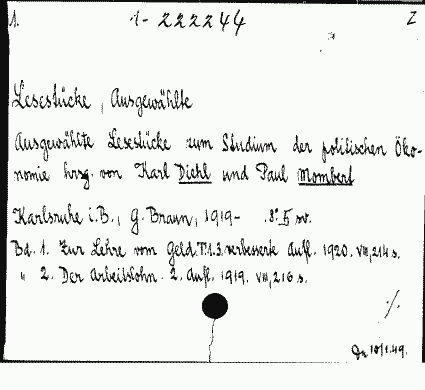 1. 1-222244 Z
Lesestücke, Ausgewählte
Ausgewählte Lesestücke zum Studium der politischen Öko-
nomie hrsg. von Karl Diehl und Paul Mombert
Karlsruhe i.B., G. Braun, 1919- 8°.
Bd. 1. Zur Lehre vom Geld. T.1.3. verbesserte Aufl. 1920. VIII, 214 S.
" 2. Der Arbeitslohn. 2. Aufl. 1919. VIII, 216 S.
./.
10/1.49.